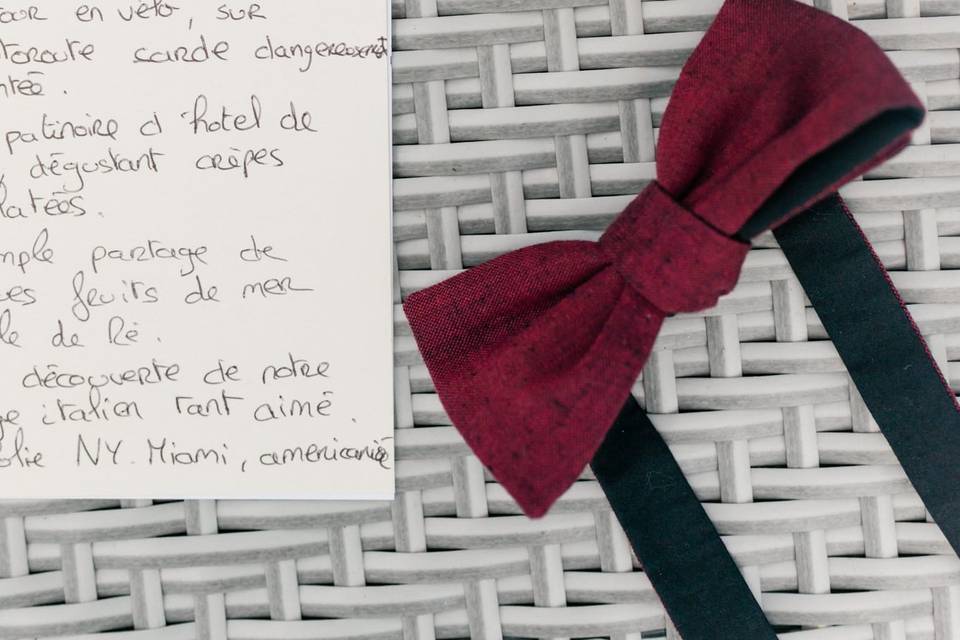 our en vélo, sur
toroute corde dangereusement
ntée.
patinoire d'hotel de
dégustant crêpes
latées.
mple partage de
ues fruits de mer
le de Ré.
découverte de notre
ge italien tant aimé.
olie NY. Miami, américanisé